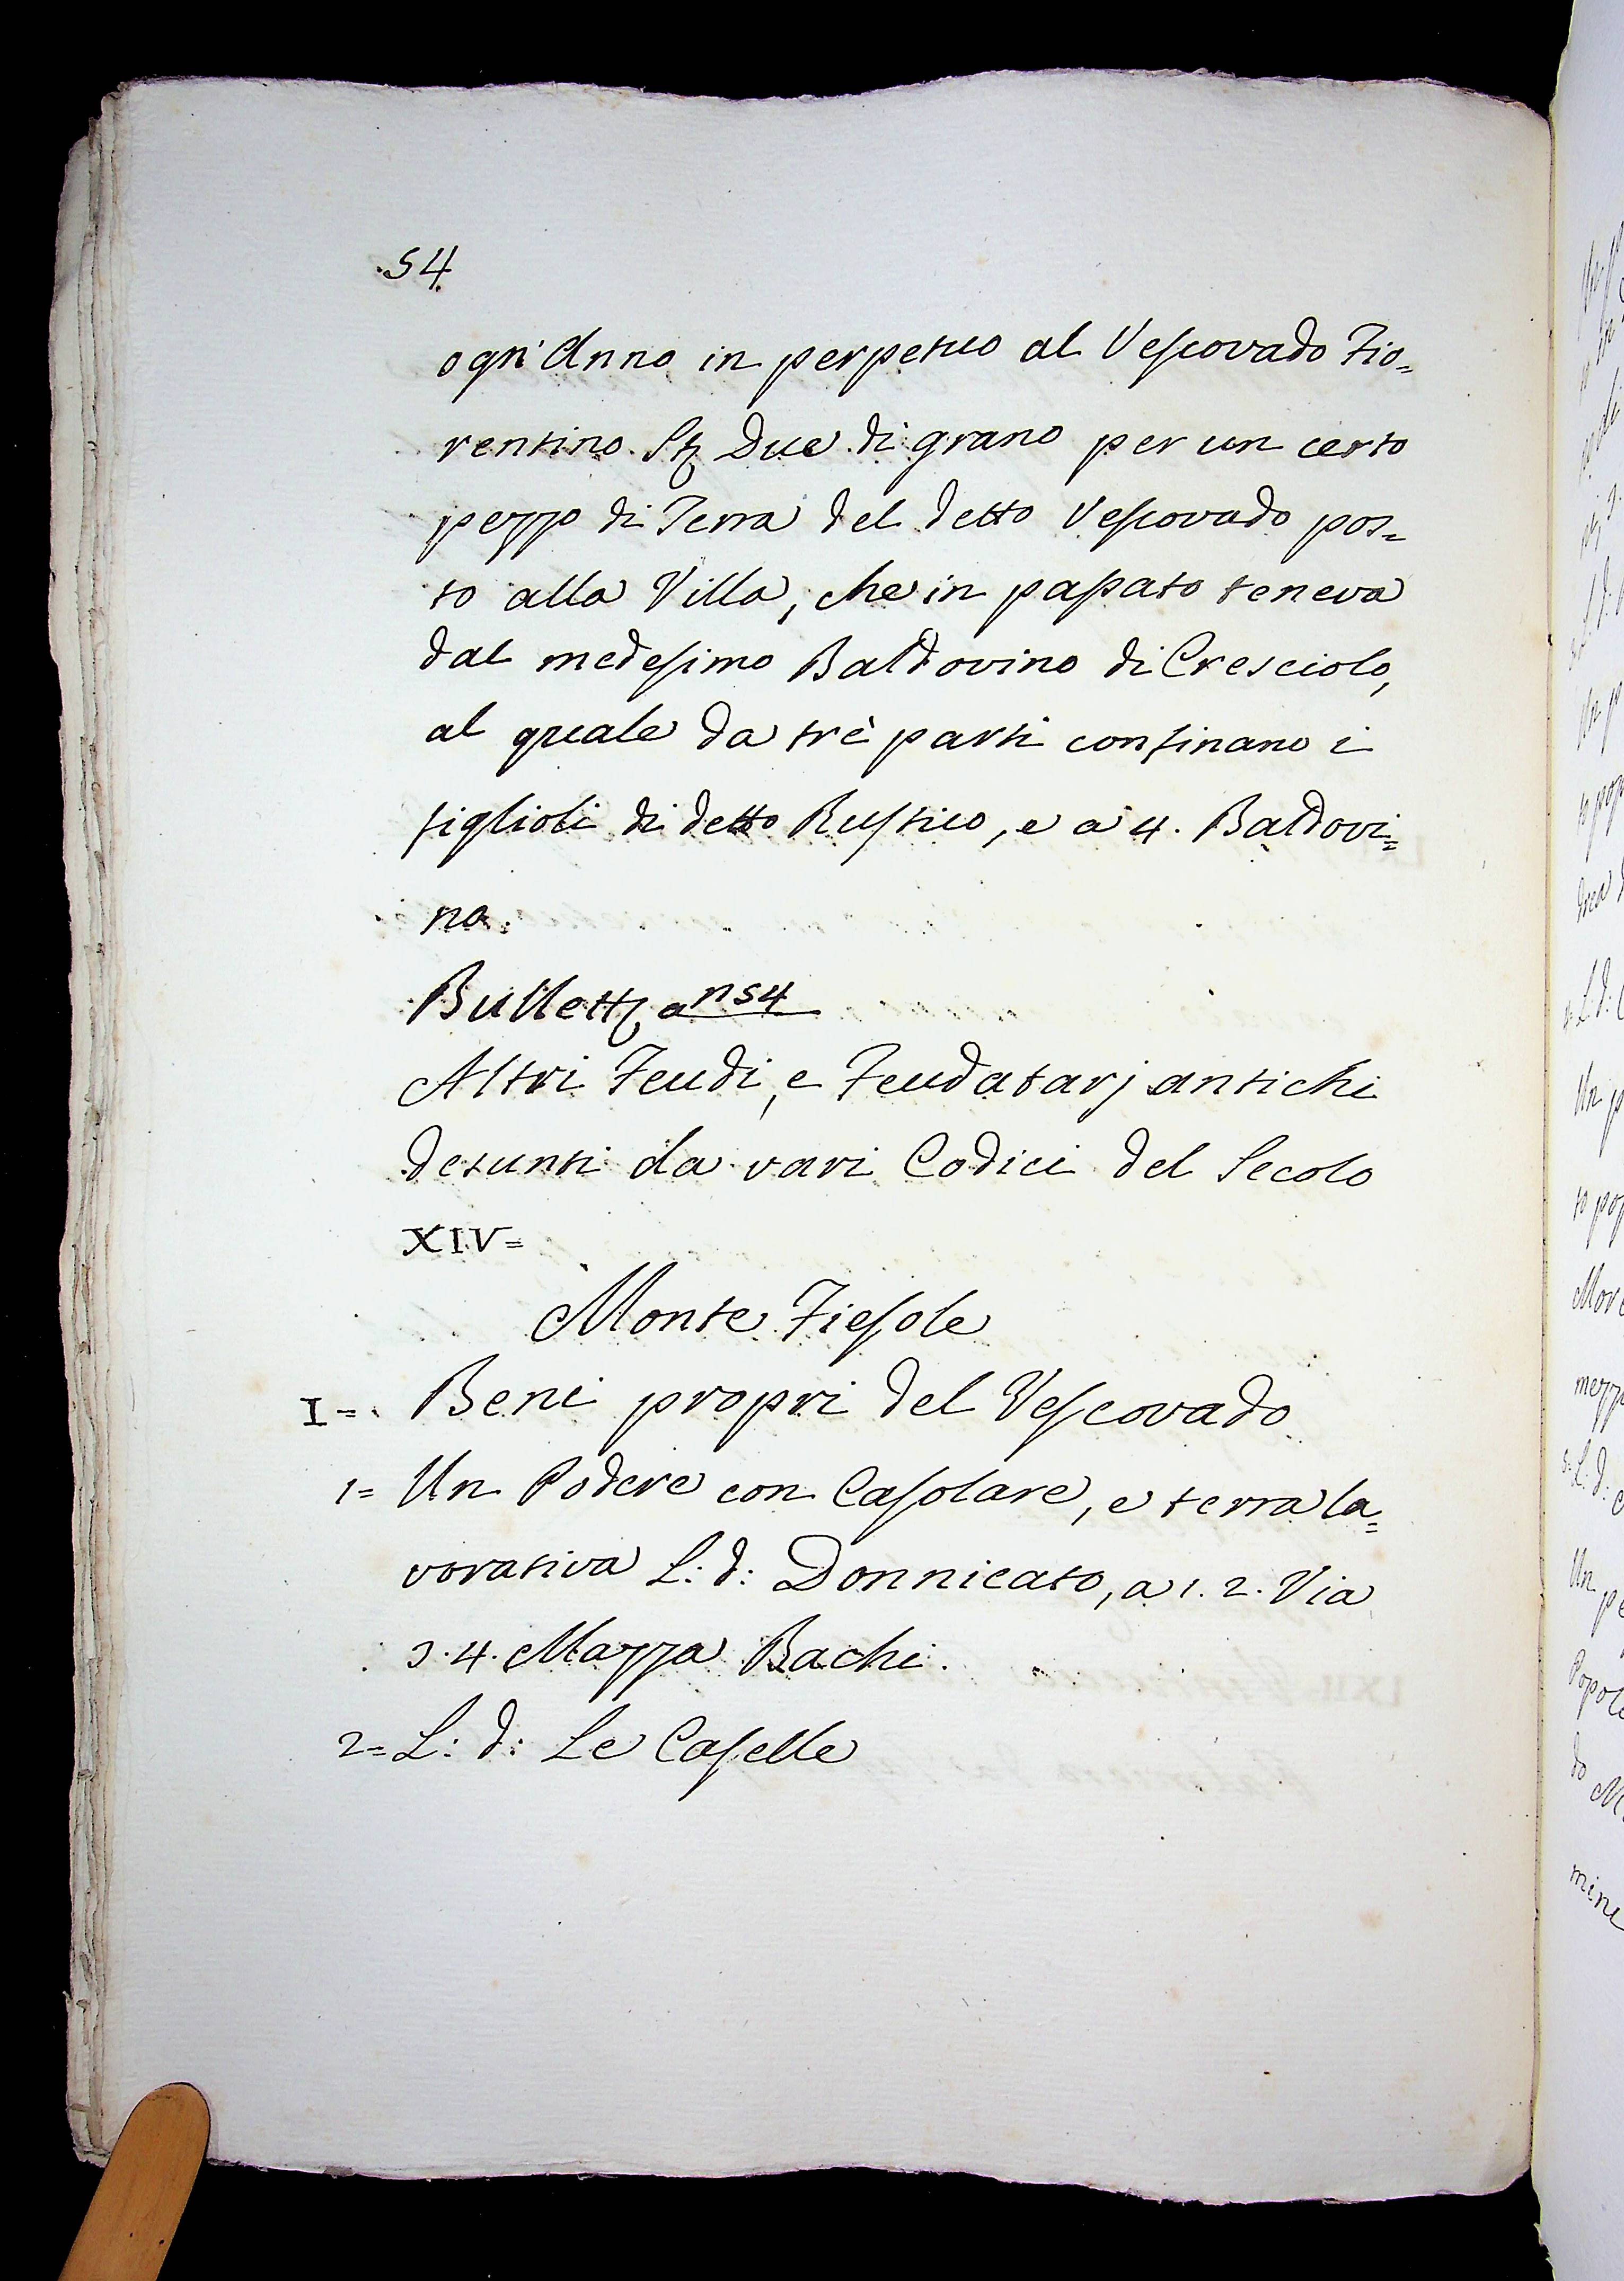 54
ogn'Anno in perpetuo al Vescovado Fio=
rentino. St Due di grano per un certo
pezzo di Terra del detto Vescovado pos=
to alla Villa, che in passato teneva
dal medesimo Baldovino di Cresciolo,
al quale da trè parti confinano i
figlioli di detto Rustico, e a 4. Baldovi=
no.
Bullett a n 54
Altri Feudi, e Feudatarj antichi
desunti da vari Codici del Secolo
XIV=
Monte Fiesole
I= Beni propri del Vescovado
1= Un Podere con Casolare, e terra la=
vorativa L: d: Donnicato, a 1. 2. Via
3. 4. Mazza Bachi.
2= L: d: Le Caselle